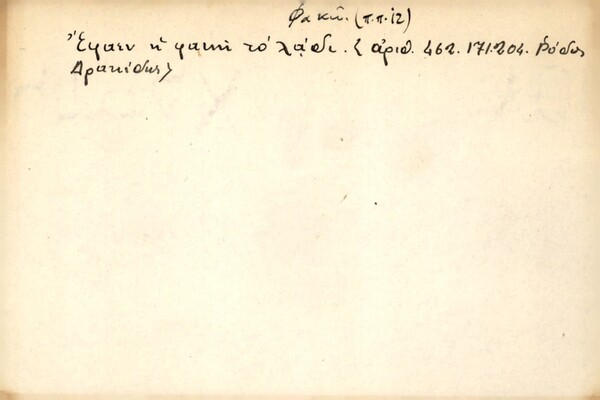 Φακῆ. (π.π. 12)
Ἔφαεν ἡ φακὴ τὸ λάδι. { ἀριθ. 462. 171.204. Ῥόδος
Δρακίδης }